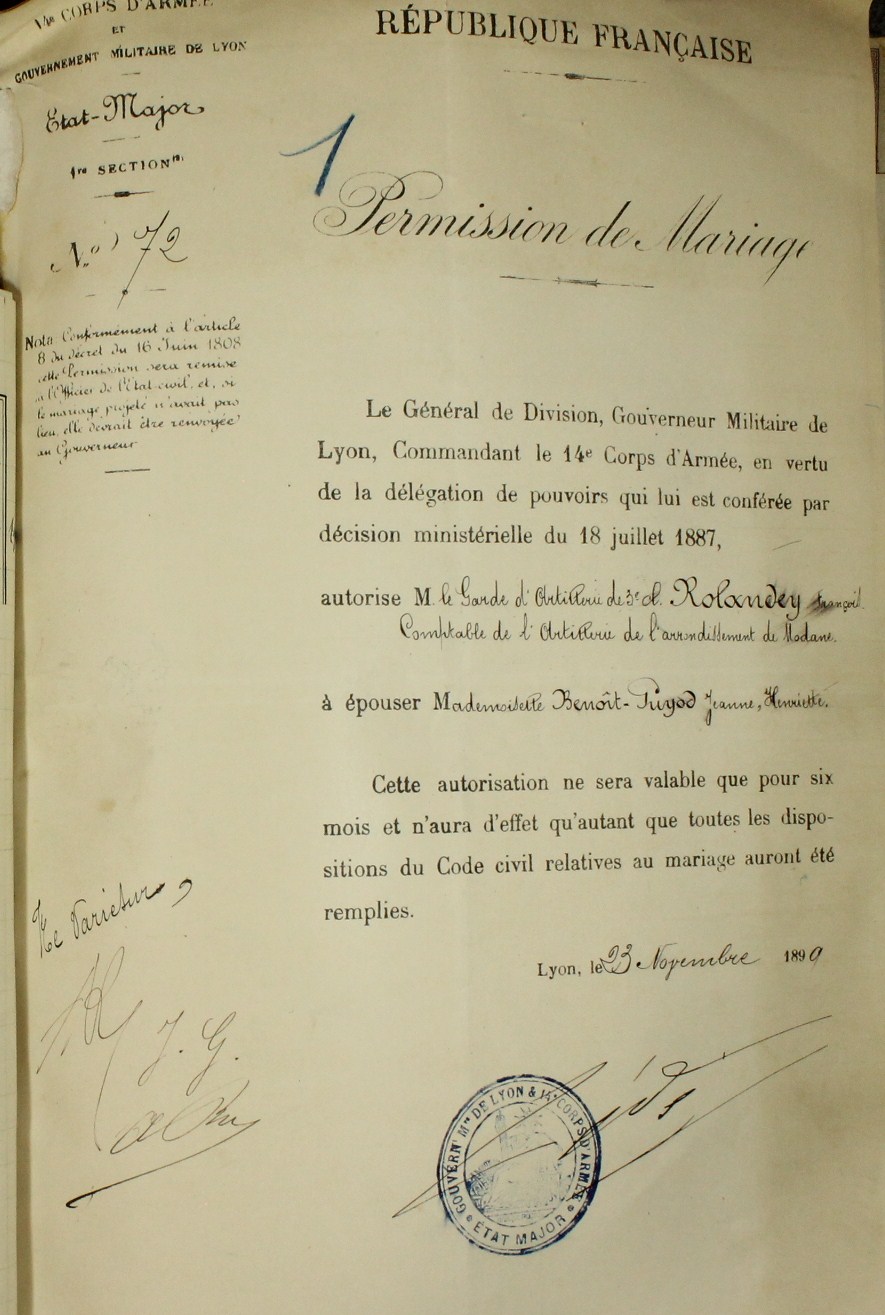 CORPS D'ARMÉE
ET
GOUVERNEMENT MILITAIRE DE LYON
Etat-Major
1re SECTION
N° 72
Nota Conformément à l'article
8 du décret du 16 Juin 1808
cette Permission sera remise
à l'Officier de l'Etat-civil, et, si
le mariage projeté n'avait pas
lieu, elle devrait être renvoyée
au Gouverneur
RÉPUBLIQUE FRANÇAISE
1
Permission de Mariage
Le Général de Division, Gouverneur Militaire de
Lyon, Commandant le 14e Corps d'Armée, en vertu
de la délégation de pouvoirs qui lui est conférée par
décision ministérielle du 18 juillet 1887,
autorise M le Garde d'Artillerie de 3e cl. Rolandey François
Comptable de l'Artillerie de l'arrondissement de Modane.
à épouser Mademoiselle Benoît-Puyod Jeanne, Henriette.
Cette autorisation ne sera valable que pour six
mois et n'aura d'effet qu'autant que toutes les dispo-
sitions du Code civil relatives au mariage auront été
remplies.
Lyon, le 23 Novembre 1890
Ne Varietur
J. G.
GOUVERNt Mre DE LYON & 14e CORPS D'ARMÉE
ETAT MAJOR